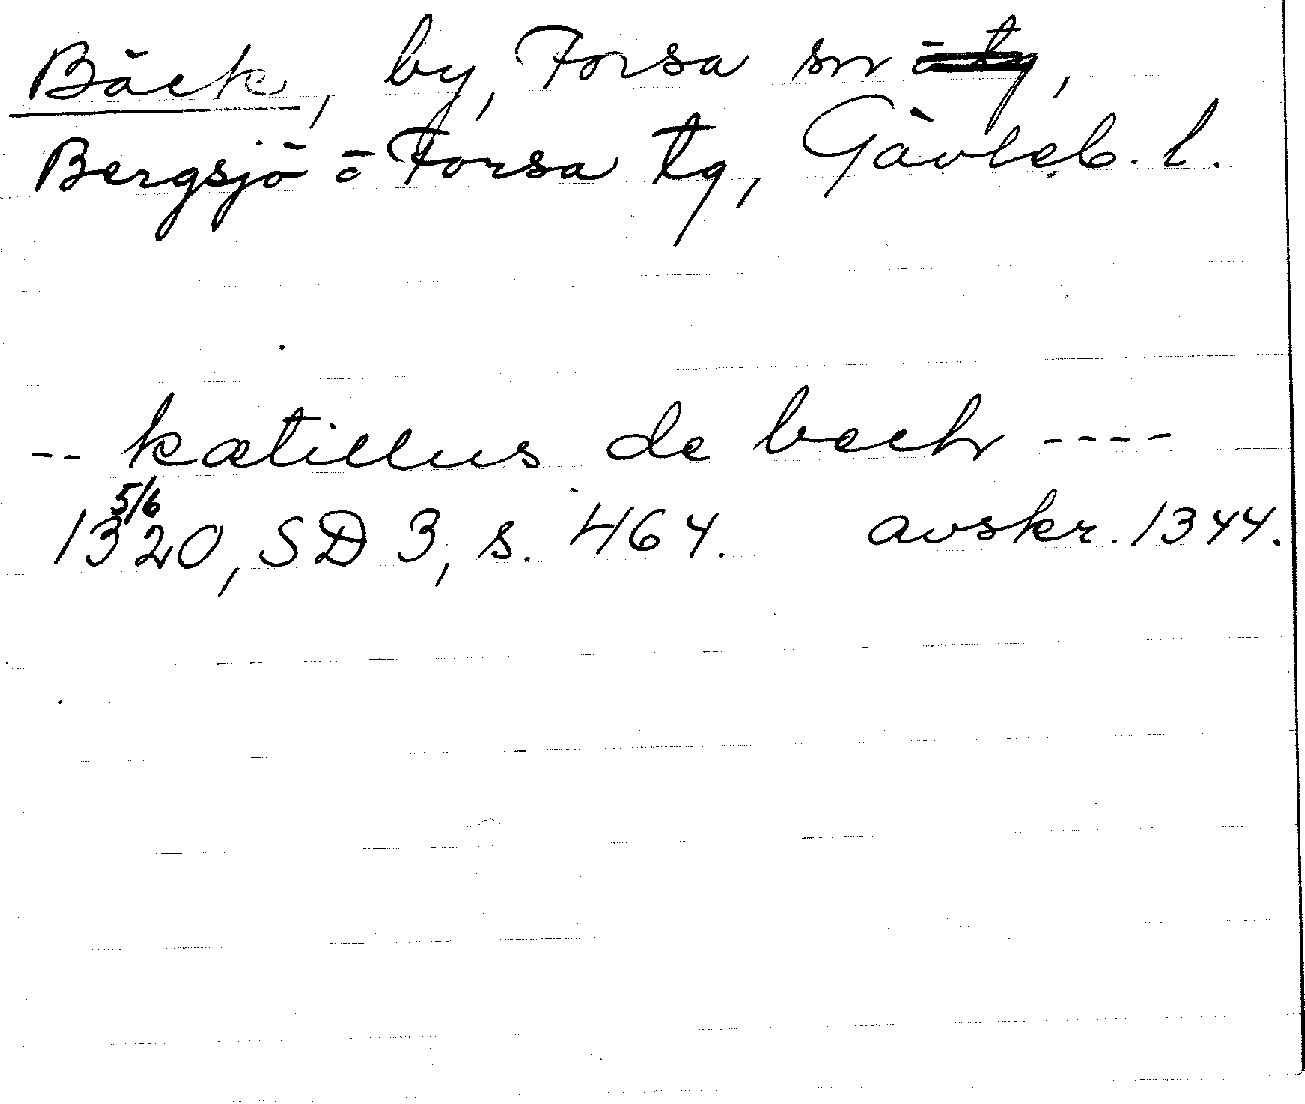 Bäck, by, Forsa sn ~~o tg~~,
Bergsjö o Forsa tg, Gävleb. l.
-- kætillus de bech ----
13 5/6 20, SD 3, s. 464. avskr. 1344.